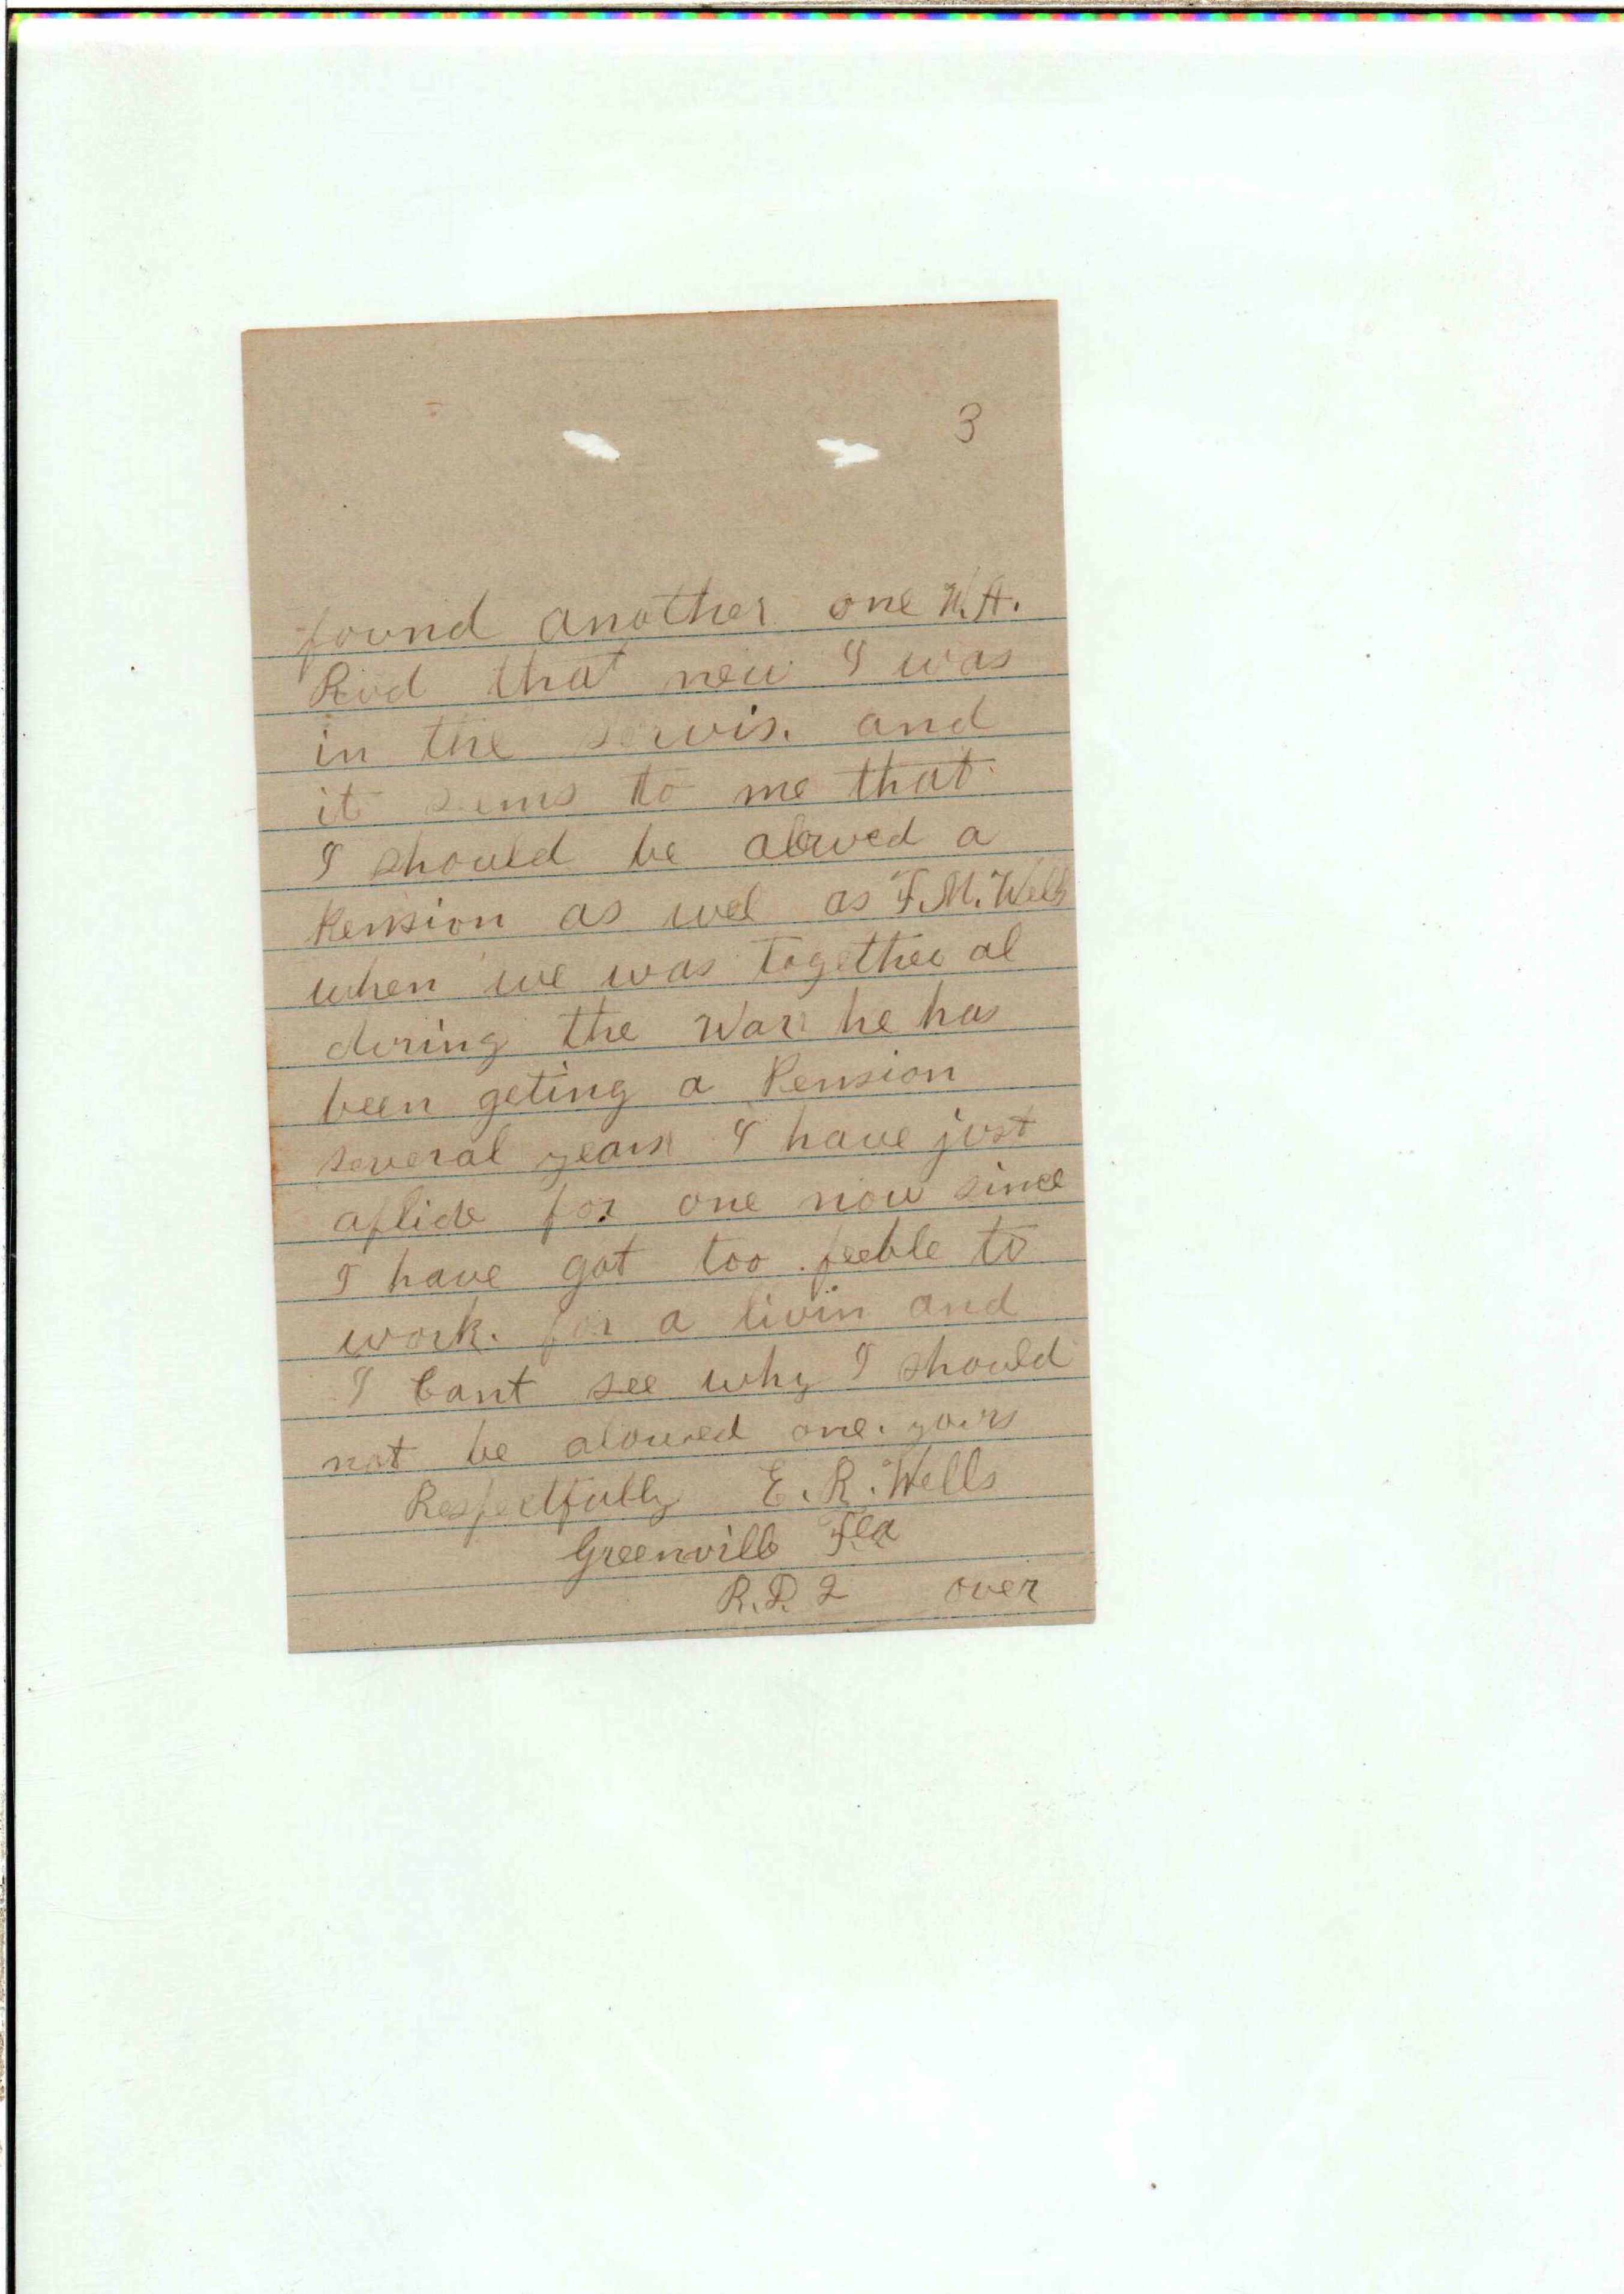 3
found another one W.A.
Rud that new I was
in the servis. and
it sems to me that
I should be alowed a
Pension as wel as F.M. Wells
when we was together al
during the War he has
been geting a Pension
several years I have just
aplide for one now since
I have got too feeble to
work. for a livin and
I Cant see why I should
not be alowed one. yours
Respectfully E. R. Wells
Greenville Fla
R.D. 2 over